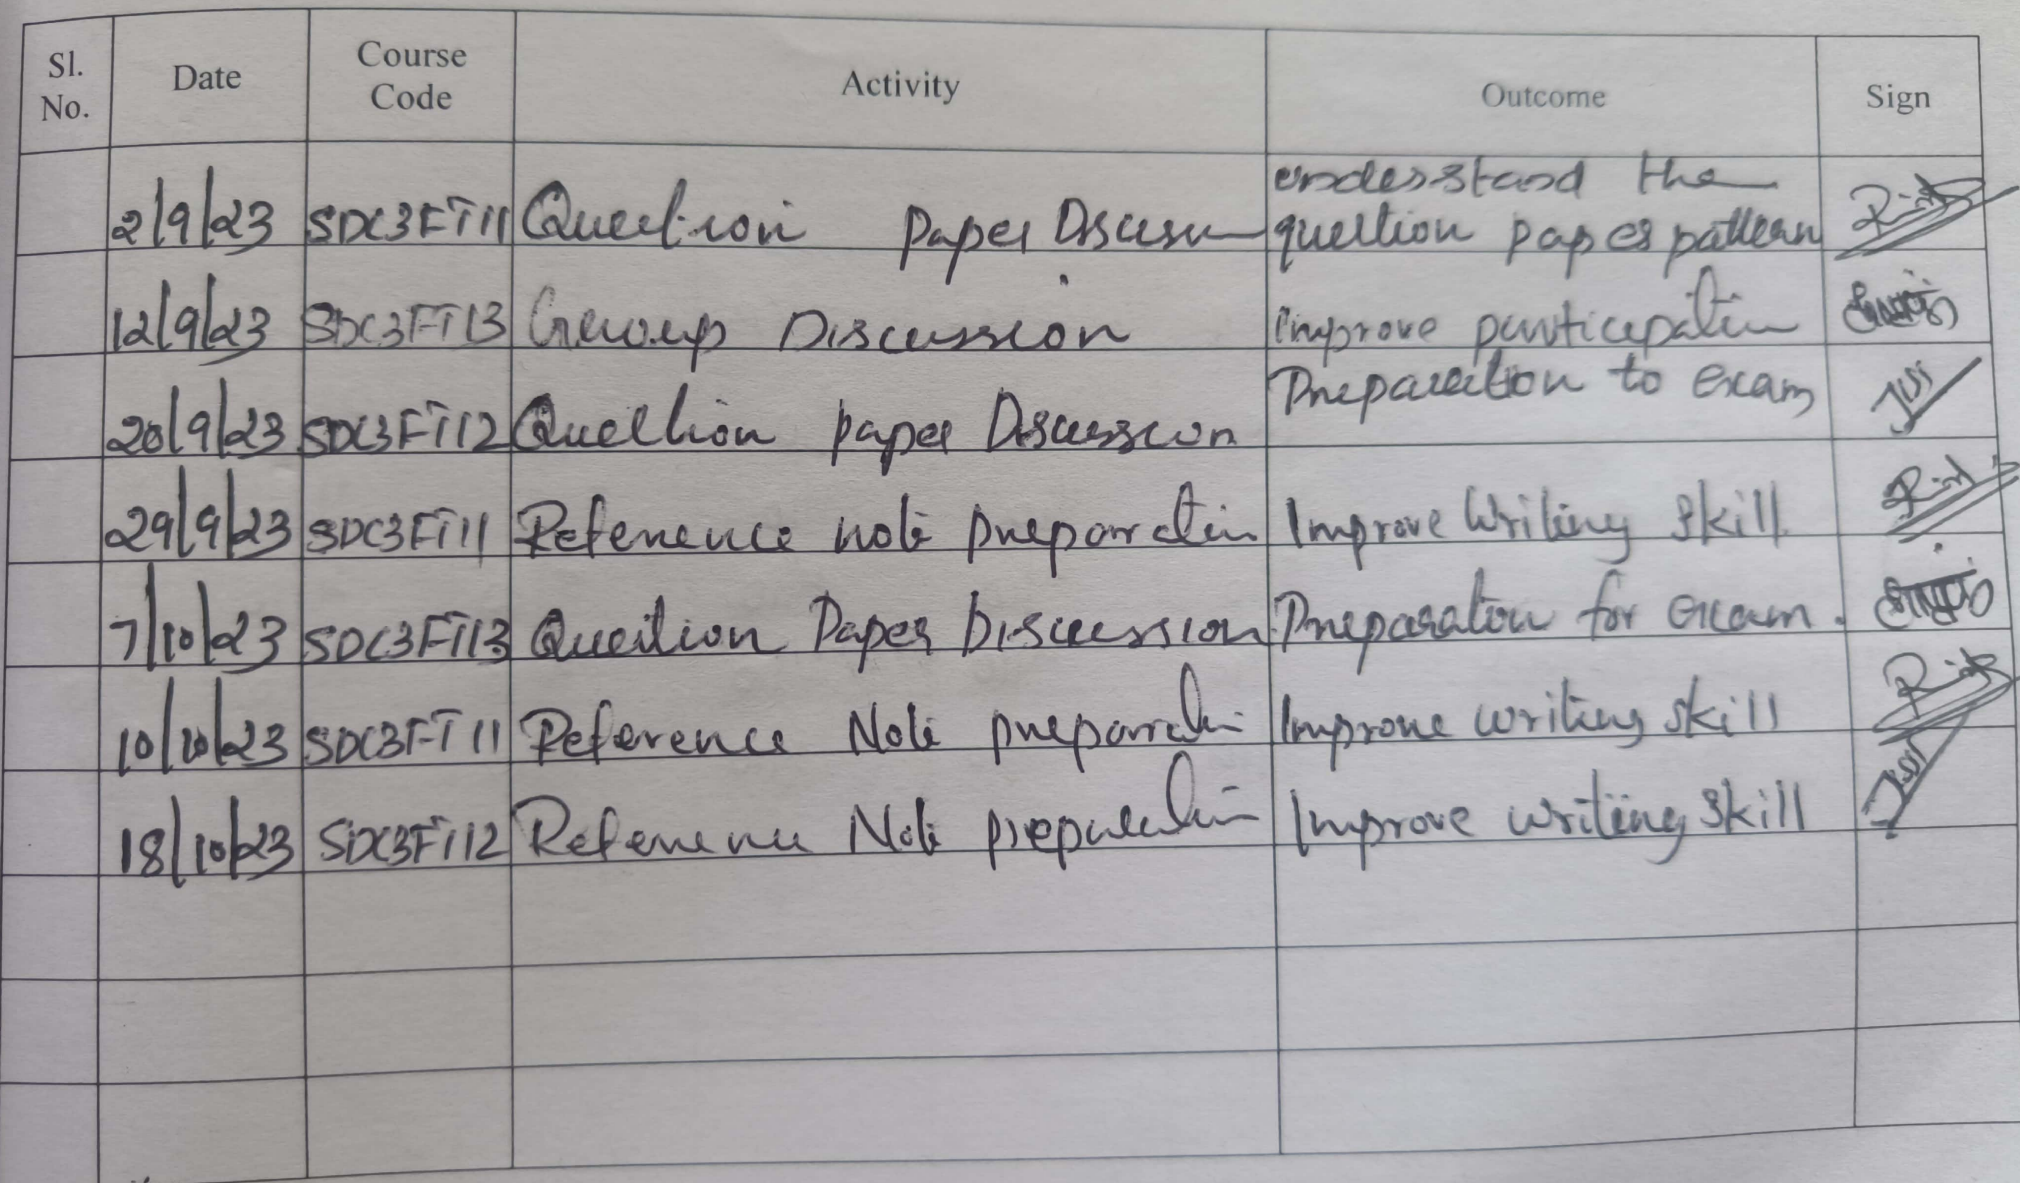 Sl. No. Date Course Code Activity Outcome Sign
2/9/23 SDC3FT11 Question Paper Discussn understand the question paper pattern
12/9/23 SDC3FT13 Group Discussion Improve participation
20/9/23 SDC3FT12 Question paper Discussion Preparation to exam
29/9/23 SDC3FT11 Reference note preparation Improve Writing skill
7/10/23 SDC3FT13 Question Paper Discussion Preparation for exam.
10/10/23 SDC3FT11 Reference Note preparation Improve writing skill
18/10/23 SDC3FT12 Reference Note preparation Improve writing skill